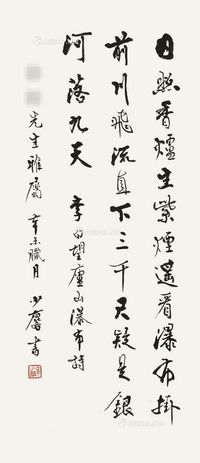 日照香爐生紫煙遙看瀑布掛
前川飛流直下三千尺疑是銀
河落九天 李白望廬山瀑布詩
先生雅屬 辛未臘月 少麐書